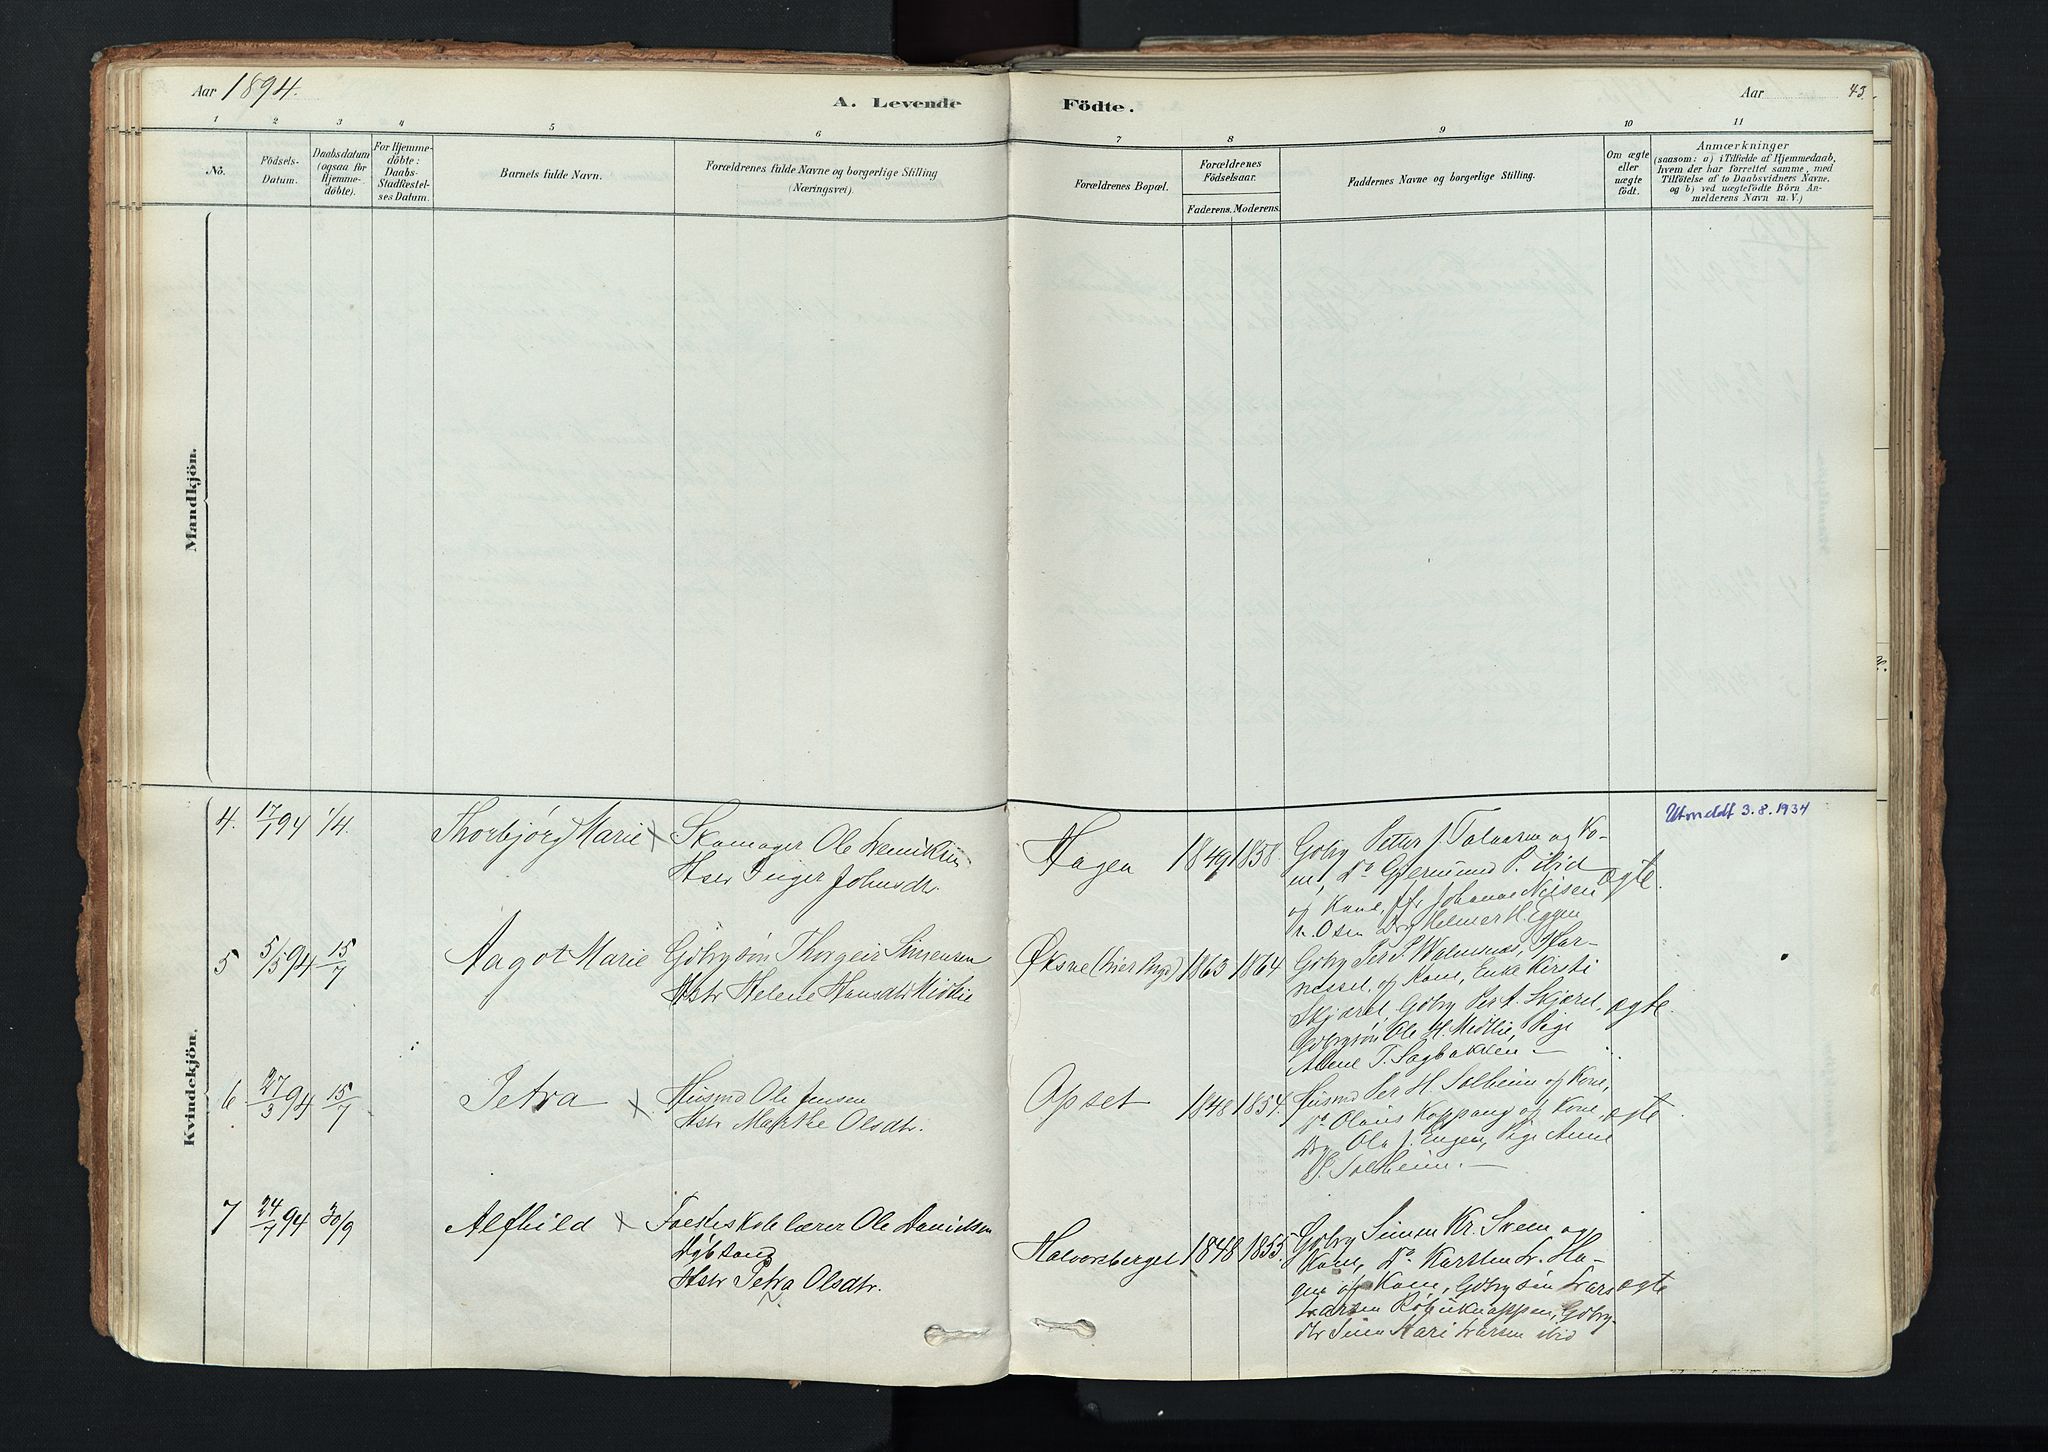 Aar 1894.
A. Levende Födte.
Aar 43.
1 2 3 4 5 6 7 8 9 10 11
No.
Födsels-
Datum.
Daabsdatum
(ogsaa for
Hjemme-
döbte).
For Hjemme-
döbte:
Daabs-
Stadfestel-
ses Datum.
Barnets fulde Navn.
Forældrenes fulde Navne og borgerlige Stilling
(Næringsvei).
Forældrenes Bopæl.
Forældrenes
Födselsaar.
Faderens. Moderens.
Faddernes Navne og borgerlige Stilling.
Om ægte
eller
uægte
født.
Anmærkninger
(saasom: a) i Tilfælde af Hjemmedaab,
hvem der har forrettet samme, med
Tilføielse af to Daabsvidners Navne.
og b) ved uægtefödte Börn An-
melderens Navn m. V.)
Mandkjön.
Kvindekjön.
4. 17/1 94 1/4. Thorbjørg Marie x
Skomager Ole
Hstr Inger Johnsdtr.
Hagen 1849 1858.
Gbrg Petter J. og Ko-
ne, Do P. ibid
og Kone, Johannes Nilsen
n. Osen Helmer H. Eggen
ægte.
Utmeldt 3.8.1934
5 5/5 94 15/7 Aagot Marie
Gbrgsøn Thorgeir Simensen
Hstr Helene Hansdtr Midtlie
Øksne 1863 1864
Gbrg Per P. Har-
nesset og Kone, Enke Kirsti
Skjæret, Gbrg Per A. Skjæret,
Gbrgsøn Ole H. Midtlie, Pige
T. Sagbakken –
ægte.
6 27/3 94 15/7 Petra x
Husmd Ole Jensen
Hstr Marthe Olsdtr.
Opset 1848 1854.
Husmd Per H. Solheim og Kone,
Do Olaus Koppang og Kone,
Ole J. Engen, Pige Anne
Solheim. –
ægte
7 24/7 94 30/9 Alfhild x
Folkeskolelærer Ole Davidsen
Hstr Petra Olsdtr.
Halvorsberget 1848 1855.
Gbrg Simen Kr. Sveen og
Kone, Do Karsten Ha-
gen og Kone, Gbrgsøn Lars
Larsen Gbrg-
dtr Kari Larsen ibid
ægte